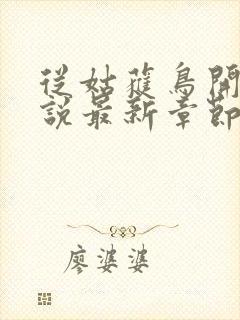 從姑蒦鳥開
說最新章節
廖婆婆